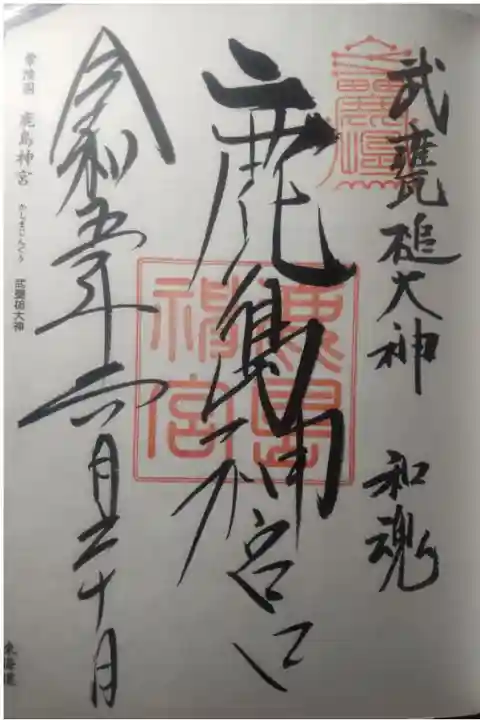 武甕槌大神 和魂
鹿島神宮
鹿島神宮
令和五年六月二十日
常陸国 鹿島神宮 かしまじんぐう 武甕槌大神
東海道